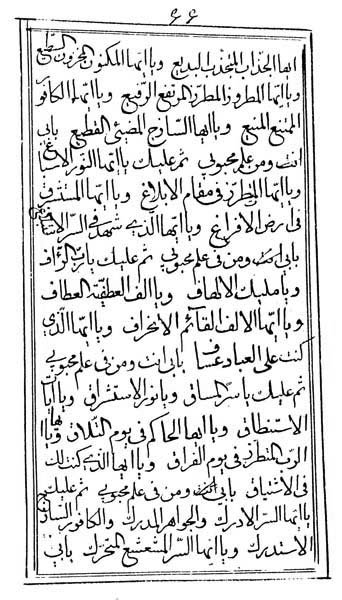 ٤٤
ايها الجذاب المنجذب البديع ويا ايها المكنون المخزون السطيع
ويا ايها المطروز المطرز المرتفع الرفيع ويا ايتها الكافور
الممتنع المنيع ويا ايها الساذج المضيئ القطيع بابي
انت ومن في علم محبوبي ثم عليك يا ايتها النور الاسباغ
ويا ايها المطرز في مقام الابلاغ ويا ايها المستشرق
في ارض الافراغ ويا ايها الذي شهد في السر
بابي انت ومن في علم محبوبي ثم عليك يا رب الرآف
ويا مليك الالهاف ويا الف العطيفة العطاف
ويا ايها الالف القائم الانحراف ويا ايها الذي
كنت على العباد عساف بابي انت ومن في علم محبوبي
ثم عليك يا سر المساق ويا نور الاستشراق ويا
الاستنطاق ويا ايها الحاكم في يوم التلاق ويا ايها
الرب المتطرز في يوم الفراق ويا ايها الذي كنت لك
في الاشتياق بابي انت ومن في علم محبوبي ثم عليك
يا ايها السر الادرك والجواهر المدرك والكافور
الاستدرك ويا ايها السر المشعشع المتحرك بابي